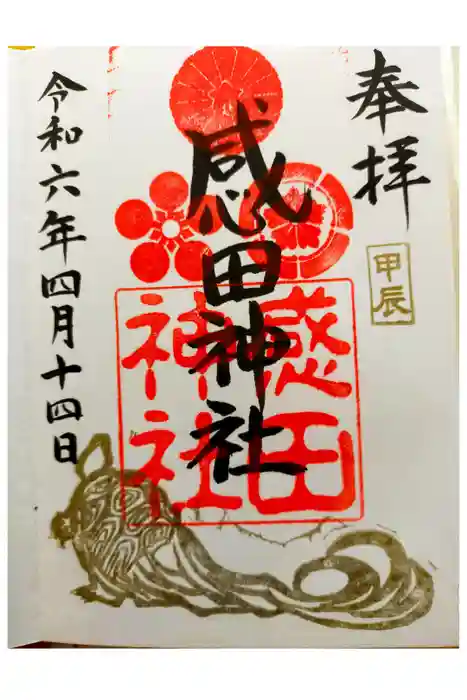 奉拝
甲辰
感田神社
感田
神社
令和六年四月十四日